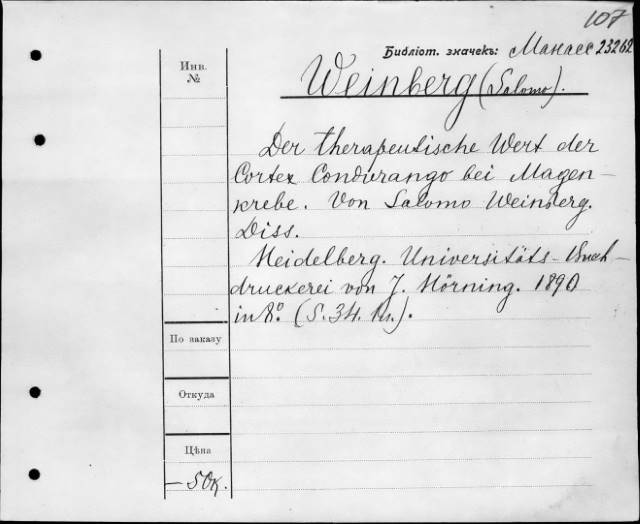 107
Библіот. значекъ: Манасс 23262
Инв.
№
Weinberg (Salomo).
Der therapeutische Wert der
Cortex Condurango bei Magen-
krebe. Von Salomo Weinberg.
Diss.
Heidelberg. Universitäts-Buch-
druckerei von J. Hörning. 1890
in 8º. (S. 34.
По заказу
Откуда
Цѣна
— 50к.